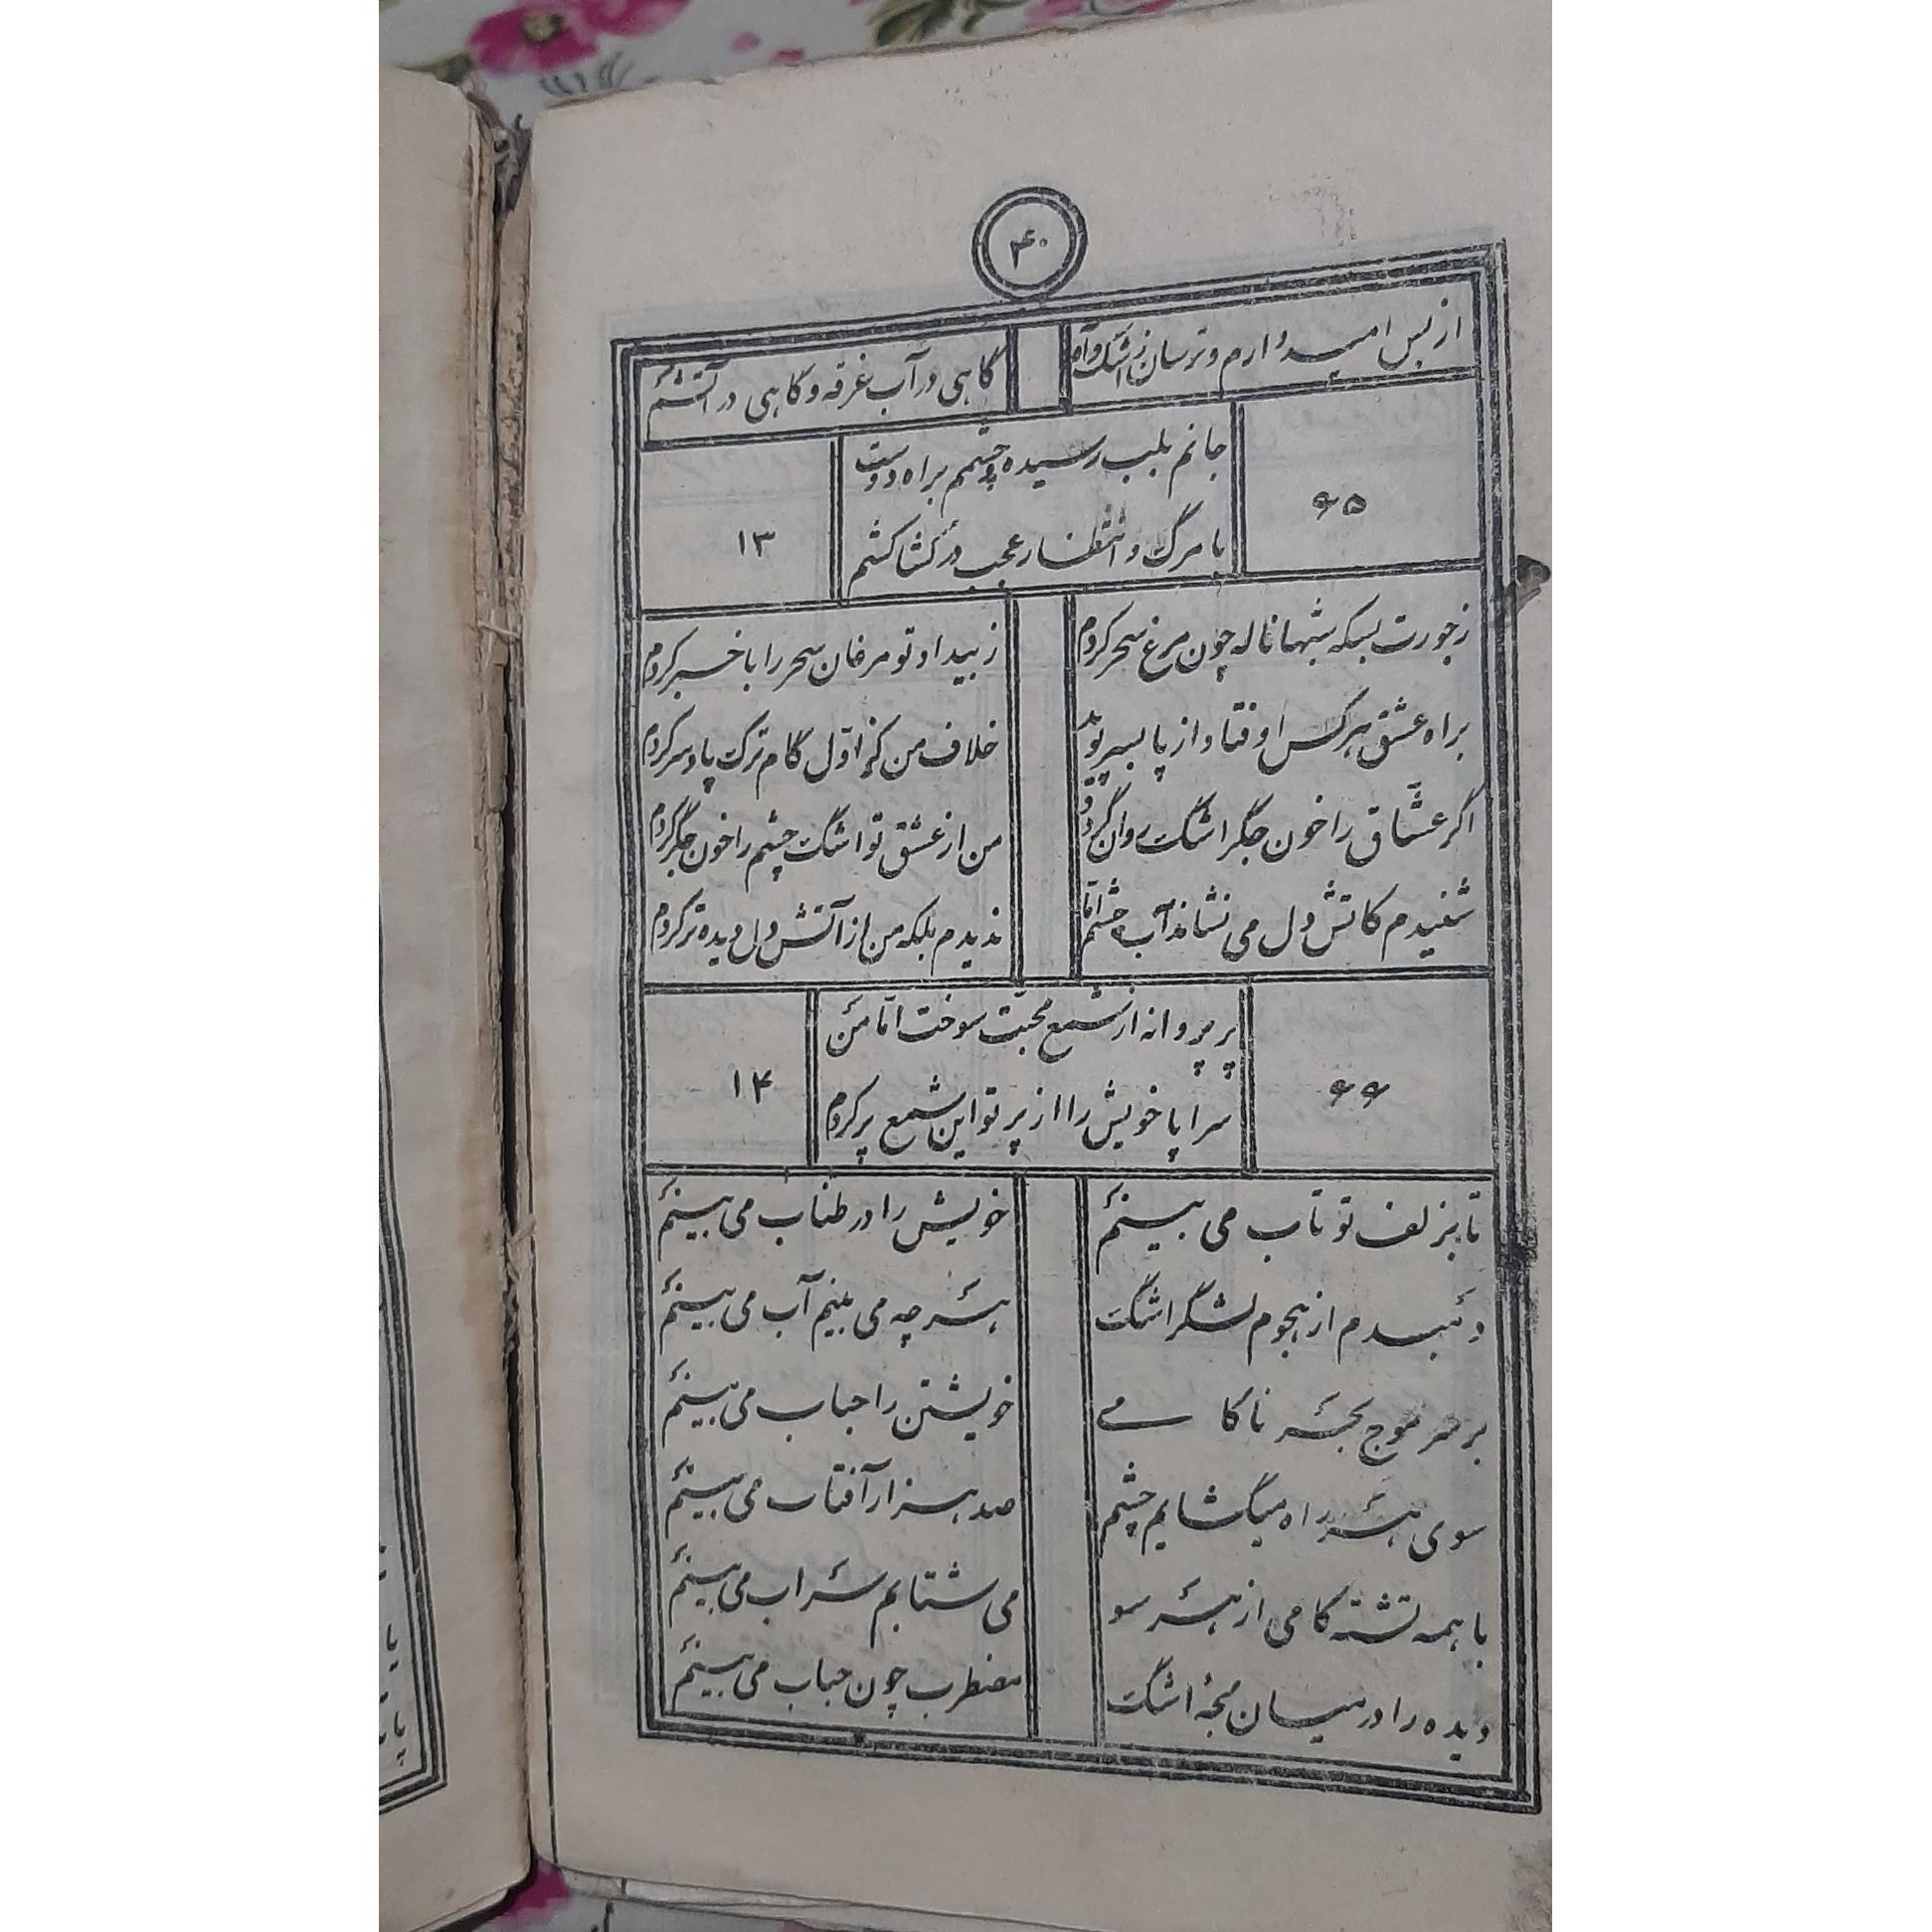 ۴۰
از بس امیدوارم و ترسان ز اشک و آه
گاهی در آب غرقه و گاهی در آتشم
۶۵
جانم بلب رسیده و چشمم براه دوست
با مرگ و انتظار عجب در کشاکشم
۱۳
ز جورت بسکه شبها ناله چون مرغ سحر کردم
ز بیداد تو مرغان سحر را با خبر کردم
براه عشق هر کس اوفتاد از پا بسر پوید
خلاف من کز اوّل گام ترک پا و سر کردم
اگر عشّاق را خون جگر اشک روان گردد
من از عشق تو اشک چشم را خون جگر کردم
شنیدم کاتش دل می نشاند آب چشم امّا
ندیدم بلکه من از آتش دل دیده تر کردم
۶۶
پر پروانه از شمع محبّت سوخت امّا من
سراپا خویش را از پرتو این شمع پر کردم
۱۴
تا بزلف تو تاب می بینم
خویش را در طناب می بینم
دمبدم از هجوم لشگر اشک
هر چه می بینم آب می بینم
بر سر موج بحر ناکامی
خویشتن را حباب می بینم
سوی هر راه میگشایم چشم
صد هزار آفتاب می بینم
با همه تشنه کامی از هر سو
می شتابم سراب می بینم
دیده را در میان لجهٔ اشک
مضطرب چون حباب می بینم